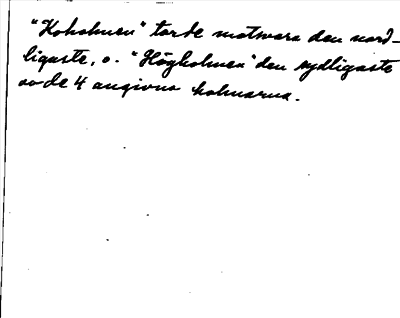 "Kohohmen" torde motsvara den nord-
ligaste, o. "Högholmen" den sydligaste
av de 4 angivna holmarna.